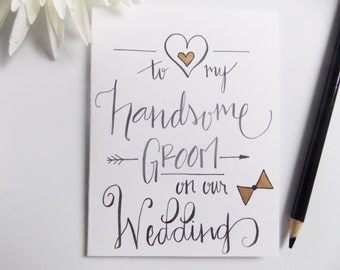 to my
handsome
GROOM
on our
Wedding